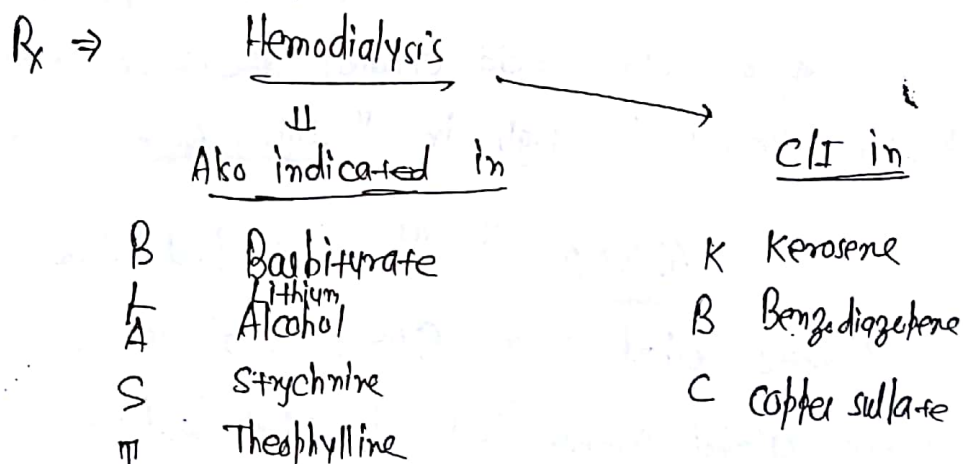 Rx ⇒ Hemodialysis
⇓
Also indicated in
B Barbiturate
L Lithium
A Alcohol
S Strychnine
T Theophylline
C/I in
K Kerosene
B Benzodiazepene
C Copper sulfate